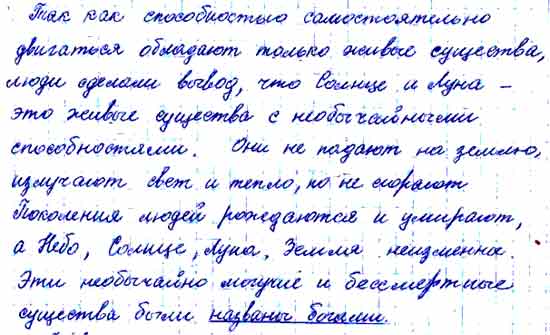 Так как способностью самостоятельно
двигаться обладают только живые существа,
люди сделали вывод, что Солнце и Луна –
это живые существа с необычайными
способностями. Они не падают на землю,
излучают свет и тепло, но не сгорают
Поколения людей рождаются и умирают,
а Небо, Солнце, Луна, Земля неизменны.
Эти необычайно могучие и бессмертные
существа были названы богами.